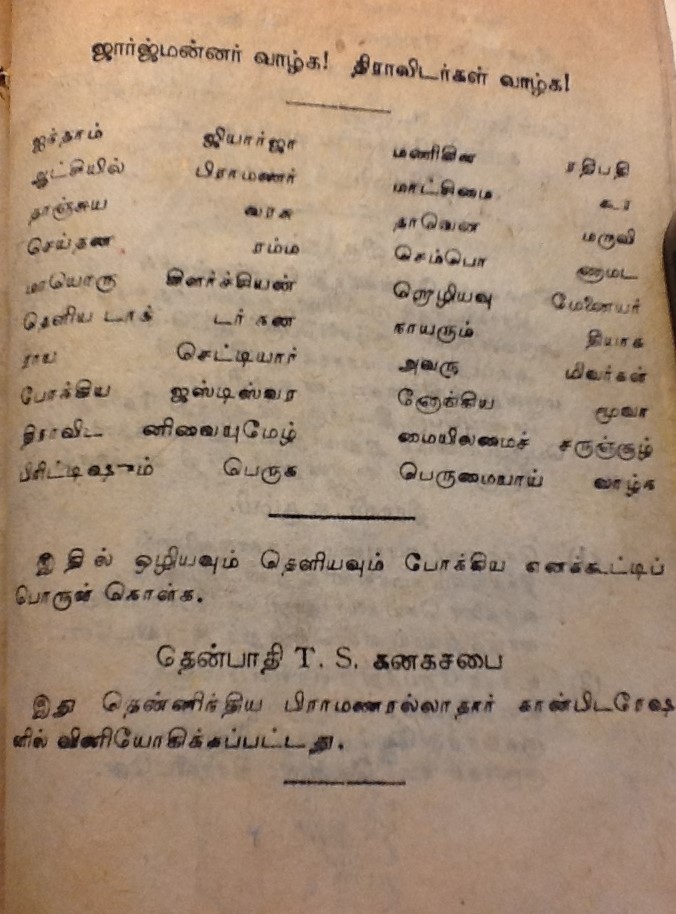 ஜார்ஜ்மன்னர் வாழ்க! திராவிடர்கள் வாழ்க!
ஐந்தாம் ஜியார்ஜா மணிகின ரதிபதி
ஆட்சியில் பிராமணர் மாட்சிமை கூர
தாஞ்சுய வரசு தாவென மருவி
செய்தன ரம்ம செம்பொ ணுமட
மாயொரு கிளர்ச்சியண் றெழியவு மேனையர்
தெளிய டாக் டர் கன நாயரும் தியாக
ராய செட்டியார் அவரு மிவர்கள்
போக்கிய ஜஸ்டிஸ்வர ளோங்கிய மூவா
திராவிட னிவையுமேழ் மையிலமைச் சருஞ்சூழ்
பிரிட்டிஷும் பெருக பெருமையாய் வாழ்க
இதில் ஒழியவும் தெளியவும் போக்கிய எனக்கூட்டிப்
பொருள் கொள்க.
தென்பாதி T. S. கனகசபை
இது தென்னிந்திய பிராமணரல்லாதார் கான்பிடரேஷ
னில் வினியோகிக்கப்பட்டது.